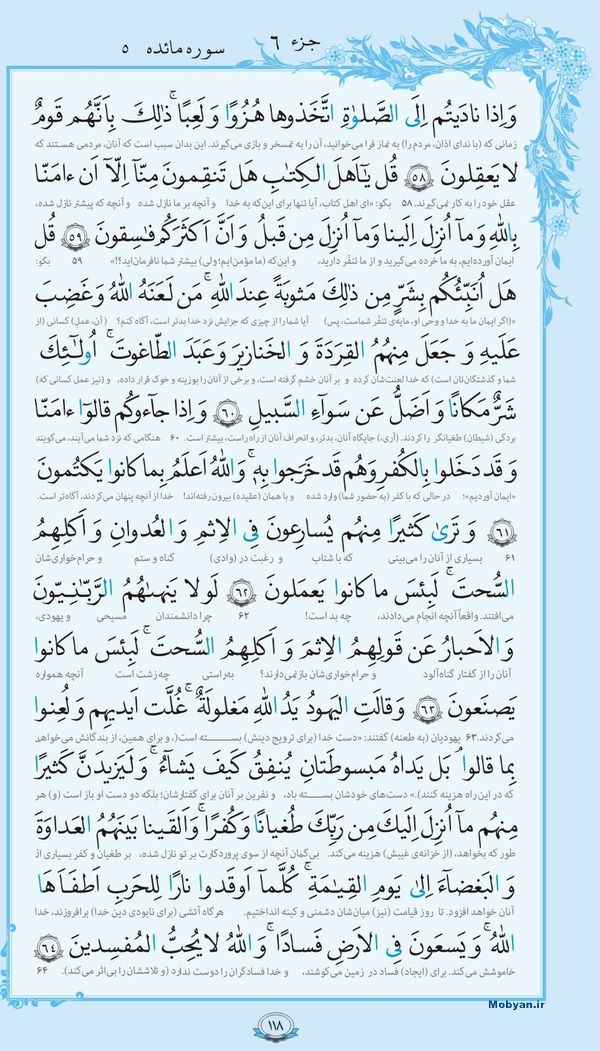 جزء ۶
سوره مائده ۵
وَ اِذا نادَیتُم اِلَی الصَّلوٰةِ اتَّخَذوها هُزُوًا وَ لَعِبًا ۚ ذٰلِکَ بِاَنَّهُم قَومٌ
زمانی که (با ندای اذان، مردم را) به نماز فرا می‌خوانید، آن را به تمسخر و بازی می‌گیرند. این بدان سبب است که آنان، مردمی هستند که
لا یَعقِلونَ ﴿۵۸﴾ قُل یٰۤاَهلَ الکِتٰبِ هَل تَنقِمونَ مِنّاۤ اِلّاۤ اَن ءامَنّا
عقل خود را به کار نمی‌گیرند. ۵۸ بگو: «ای اهل کتاب، آیا تنها برای این‌که به خدا و آنچه بر ما نازل شده و آنچه که پیشتر نازل شده،
بِاللهِ وَ ماۤ اُنزِلَ اِلَینا وَ ماۤ اُنزِلَ مِن قَبلُ وَ اَنَّ اَکثَرَکُم فٰسِقونَ ﴿۵۹﴾ قُل
ایمان آورده‌ایم، به ما خرده می‌گیرید و از ما تنفّر دارید، و این‌که (ما مؤمن‌ایم؛ ولی) بیشتر شما نافرمان‌اید؟!» ۵۹ بگو:
هَل اُنَبِّئُکُم بِشَرٍّ مِن ذٰلِکَ مَثوبَةً عِندَ اللهِ ۚ مَن لَعَنَهُ اللهُ وَ غَضِبَ
«(اگر ایمان ما به خدا و وحی او، مایه‌ی تنفّر شماست، پس) آیا شما را از چیزی که جزایش نزد خدا بدتر است، آگاه کنم؟ (آن، عمل) کسانی (از
عَلَیهِ وَ جَعَلَ مِنهُمُ القِرَدَةَ وَ الخَنازیرَ وَ عَبَدَ الطّاغوتَ ۚ اُولٰۤئِکَ
شما و گذشتگان‌تان است) که خدا لعنت‌شان کرده و بر آنان خشم گرفته است، و برخی از آنان را بوزینه و خوک قرار داده، و (نیز عمل کسانی که)
شَرٌّ مَکانًا وَ اَضَلُّ عَن سَوآءِ السَّبیلِ ﴿۶۰﴾ وَ اِذا جآءوکُم قالوۤا ءامَنّا
بردگی (شیطان) طغیانگر را کردند. (آری،) جایگاه آنان، بدتر، و انحراف آنان از راه راست، بیشتر است. ۶۰ هنگامی که نزد شما می‌آیند، می‌گویند
وَ قَد دَخَلوا بِالکُفرِ وَ هُم قَد خَرَجوا بِهٖ ۚ وَ اللهُ اَعلَمُ بِما کانوا یَکتُمونَ
«ایمان آوردیم»؛ در حالی که با کفر (به حضور شما) وارد شده و با همان (عقیده) بیرون رفته‌اند! خدا از آنچه پنهان می‌کردند، آگاه‌تر است.
﴿۶۱﴾ وَ تَریٰ کَثیرًا مِنهُم یُسارِعونَ فِی الاِثمِ وَ العُدوانِ وَ اَکلِهِمُ
۶۱ بسیاری از آنان را می‌بینی که با شتاب و رغبت در (وادی) گناه و ستم و حرام‌خواری‌شان
السُّحتَ ۚ لَبِئسَ ما کانوا یَعمَلونَ ﴿۶۲﴾ لَولا یَنهىٰهُمُ الرَّبّٰنِیّونَ
می‌افتند. واقعاً آنچه انجام می‌دادند، چه بد است! ۶۲ چرا دانشمندان مسیحی و یهودی،
وَ الاَحبارُ عَن قَولِهِمُ الاِثمَ وَ اَکلِهِمُ السُّحتَ ۚ لَبِئسَ ما کانوا
آنان را از گفتار گناه‌آلود و حرام‌خواری‌شان بازنمی‌دارند؟ به‌راستی چه زشت است آنچه همواره
یَصنَعونَ ﴿۶۳﴾ وَ قالَتِ الیَهودُ یَدُ اللهِ مَغلولَةٌ ۚ غُلَّت اَیدیهِم وَ لُعِنوا
می‌کردند. ۶۳ یهودیان (به طعنه) گفتند: «دست خدا (برای ترویج دینش) بسته است (، و برای همین، از بندگانش می‌خواهد
بِما قالوا ۘ بَل یَداهُ مَبسوطَتانِ یُنفِقُ کَیفَ یَشآءُ ۚ وَ لَیَزیدَنَّ کَثیرًا
که در این راه هزینه کنند).» دست‌های خودشان بسته باد، و نفرین بر آنان برای گفتارشان؛ بلکه دو دست او باز است (و) هر
مِنهُم ماۤ اُنزِلَ اِلَیکَ مِن رَبِّکَ طُغیانًا وَ کُفرًا ۚ وَ اَلقَینا بَینَهُمُ العَداوَةَ
طور که بخواهد، (از خزانه‌ی غیبش) هزینه می‌کند. بی‌گمان آنچه از سوی پروردگارت بر تو نازل شده، بر طغیان و کفر بسیاری از
وَ البَغضآءَ اِلیٰ یَومِ القِیٰمَةِ ۚ کُلَّماۤ اَوقَدوا نارًا لِلحَربِ اَطفَاَهَا
آنان خواهد افزود. تا روز قیامت (نیز) میان‌شان دشمنی و کینه انداختیم. هرگاه آتشی (برای نابودی دین خدا) برافروزند، خدا
اللهُ ۚ وَ یَسعَونَ فِی الاَرضِ فَسادًا ۚ وَ اللهُ لا یُحِبُّ المُفسِدینَ ﴿۶۴﴾
خاموشش می‌کند. برای (ایجاد) فساد در زمین می‌کوشند، و خدا فسادگران را دوست ندارد (و تلاششان را بی‌اثر می‌کند). ۶۴
۱۱۸
Mobyan.ir